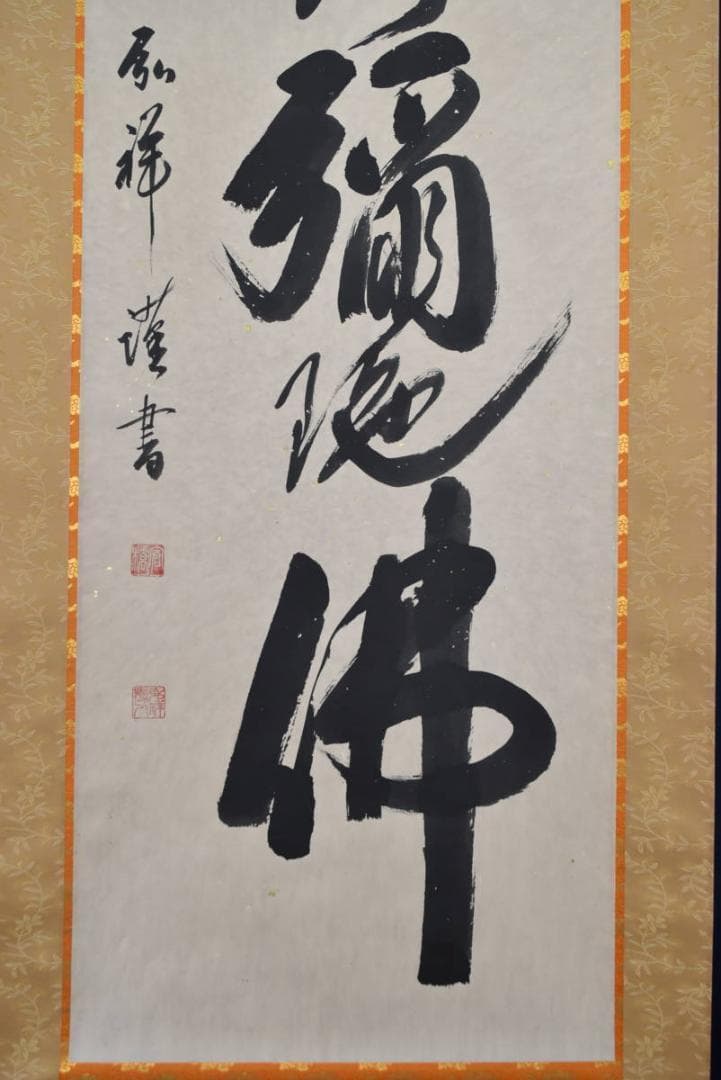 彌陀佛
弘祥謹書